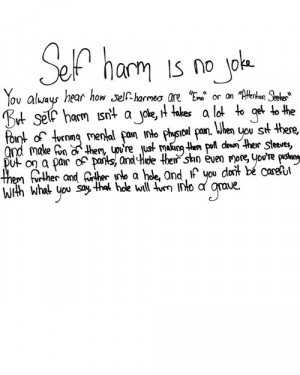 Self harm is no joke
You always hear how self-harmers are "Emo" or an "Attention Seeker"
But self harm isn't a joke, it takes a lot to get to the
Point of turning mental pain into physical pain. When you sit there,
and make fun of them, you're just making them pull down their sleeves,
put on a pair of pants, and hide their skin even more, you're pushing
them further and further into a hole, and if you don't be careful
with what you say, that hole will turn into a grave.